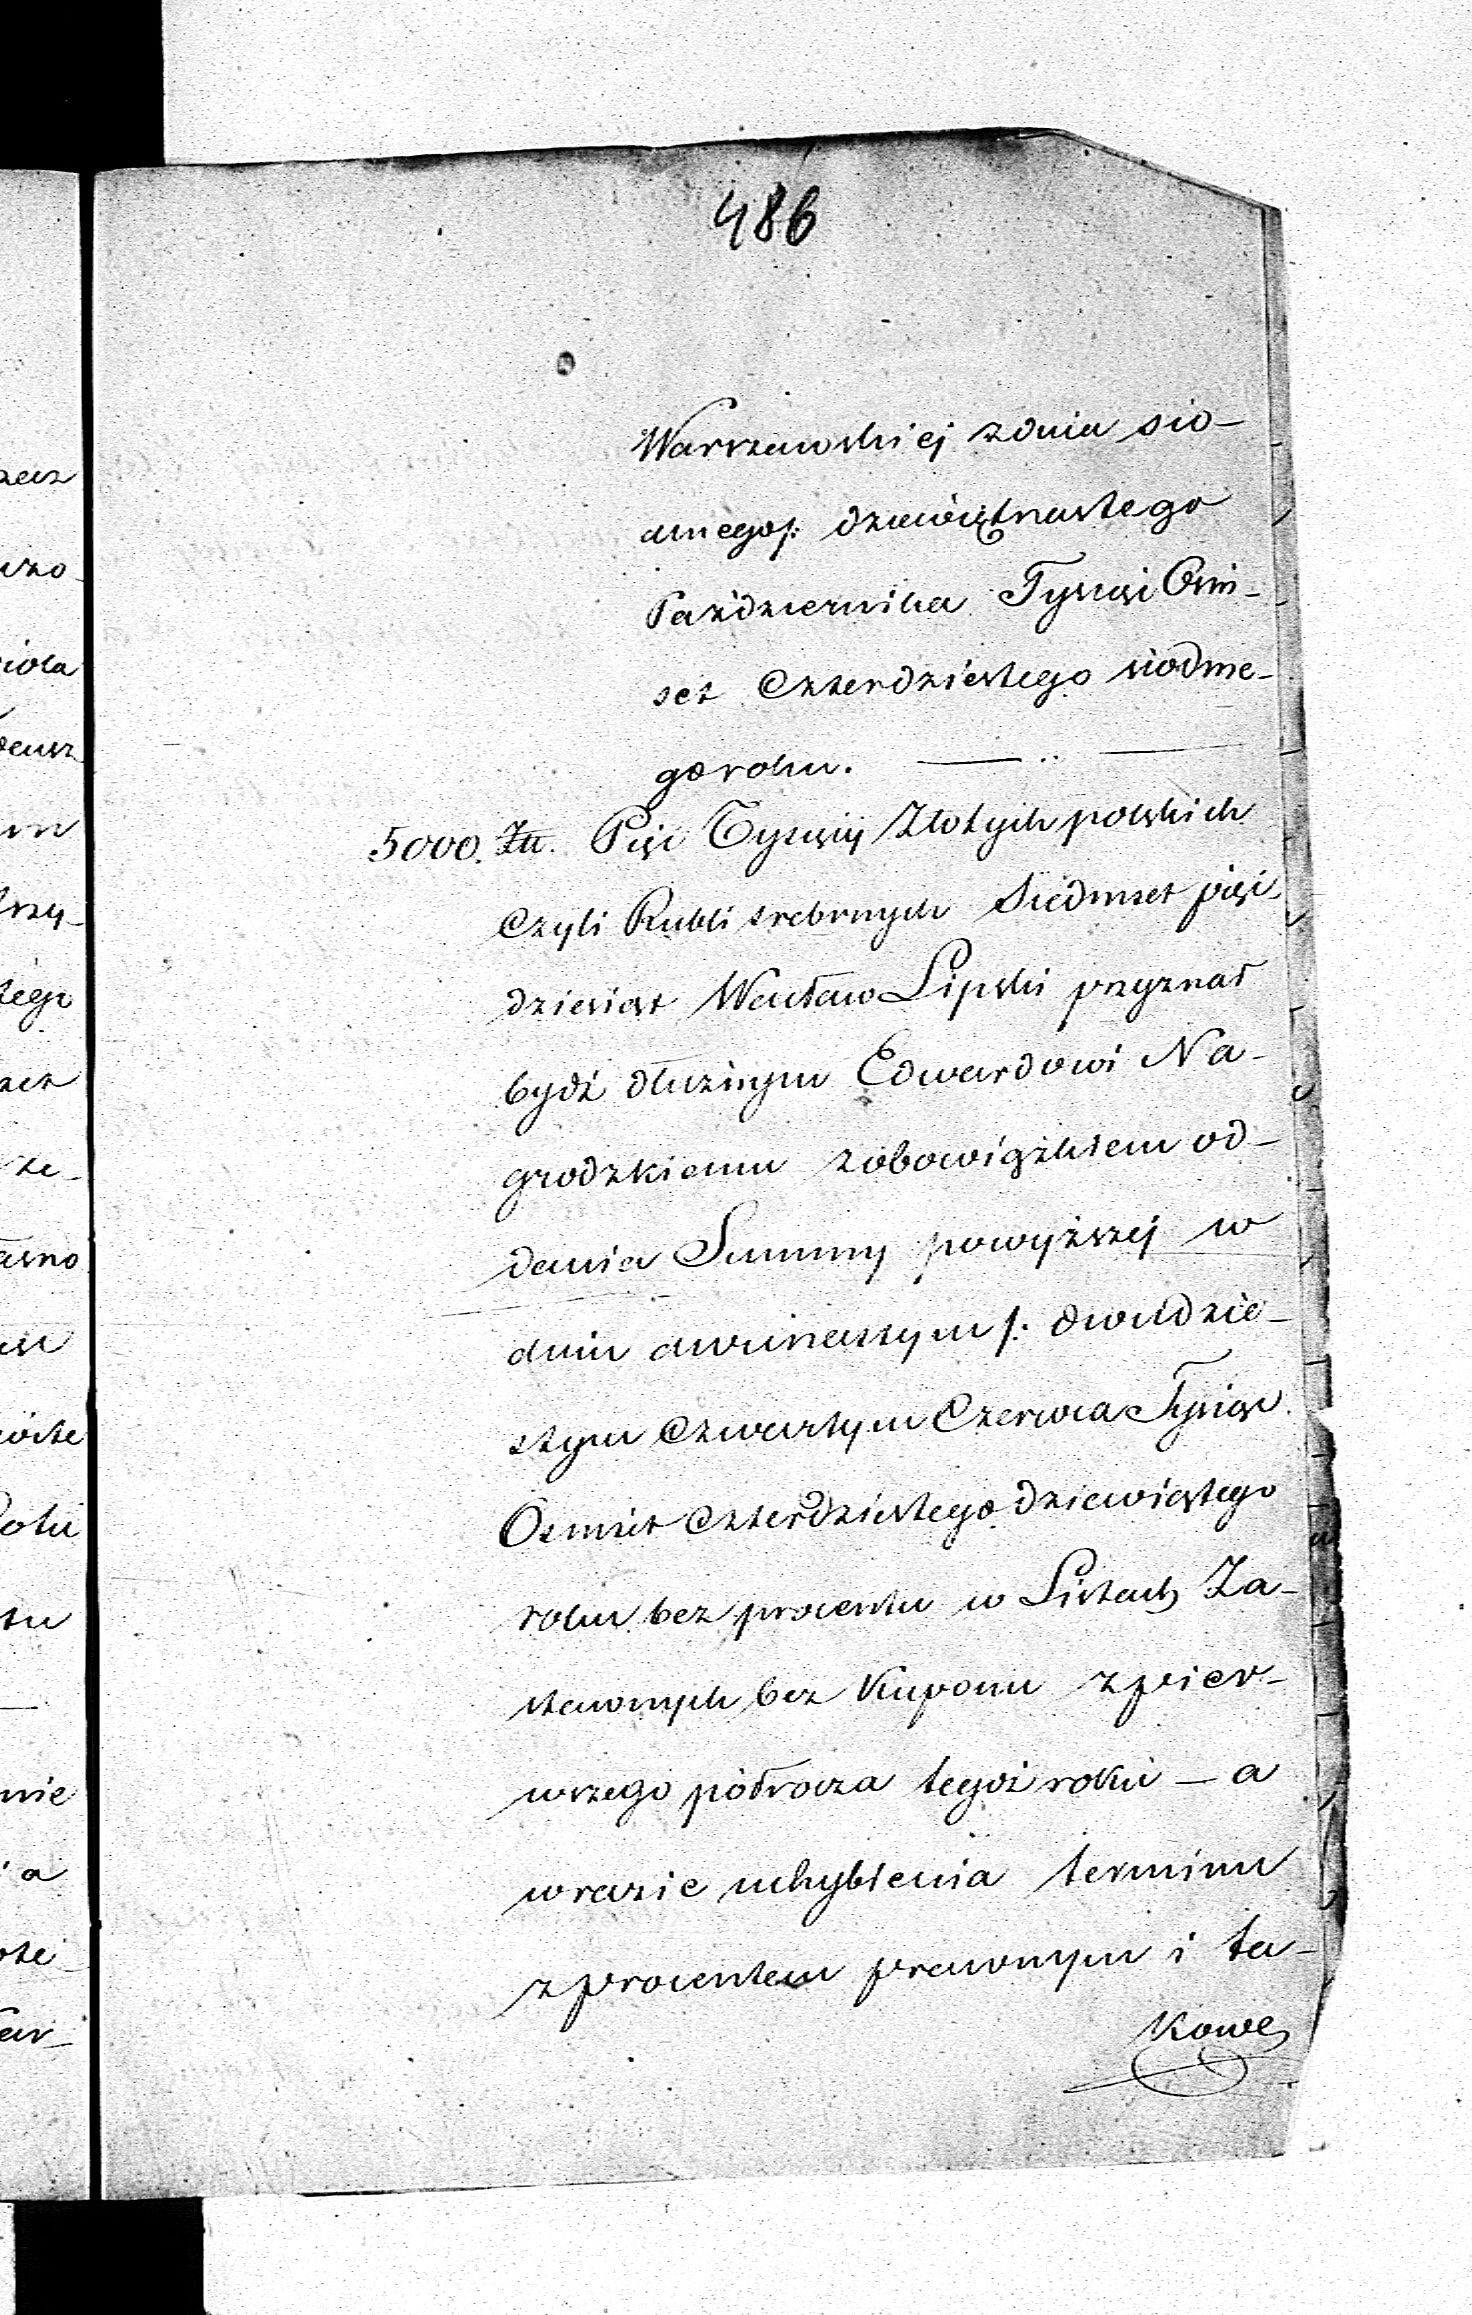 486
Warszawskiej z dnia sio-
dmego/: dziewiętnastego
Października Tysiąc Ośm-
set Czterdziestego siodme-
go roku. — .. —
5000. Złł. Pięć Tysięcy Złotych polskich
Czyli Rubli srebrnych Siedmset pięć-
dziesiąt Wacław Lipski przyznał
bydź dłużnym Edwardowi Na-
grodzkiemu z obowiązkiem od-
dania Summy powyższej w
dniu dwunastym /: dwudzie-
stym Czwartym Czerwca Tysiąc
Ośmset Czterdziestego dziewiątego
roku bez procentu w Listach Za-
stawnych bez Kuponu z pier-
wszego półrocza tegoż roku — a
w razie uchybienia terminu
z procentem prawnym i ta-
kowe
zecz
tego
mie